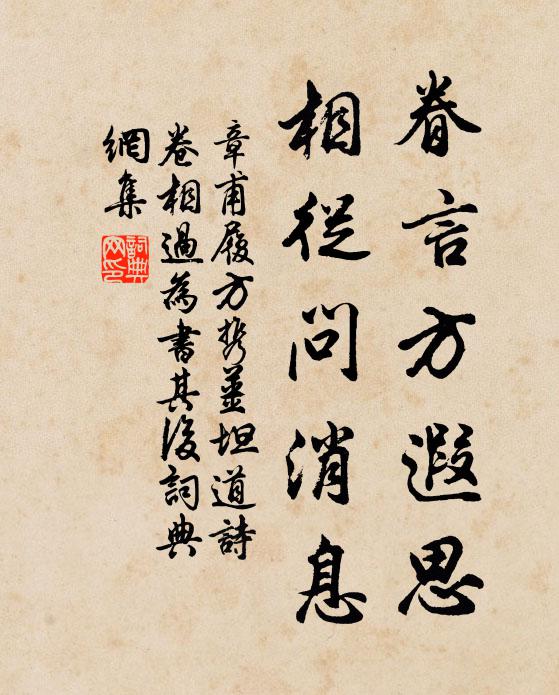 眷言方遐思
相從問消息
章甫履方携姜坦道詩
卷相過為書其後詞典
網集
詞典網印